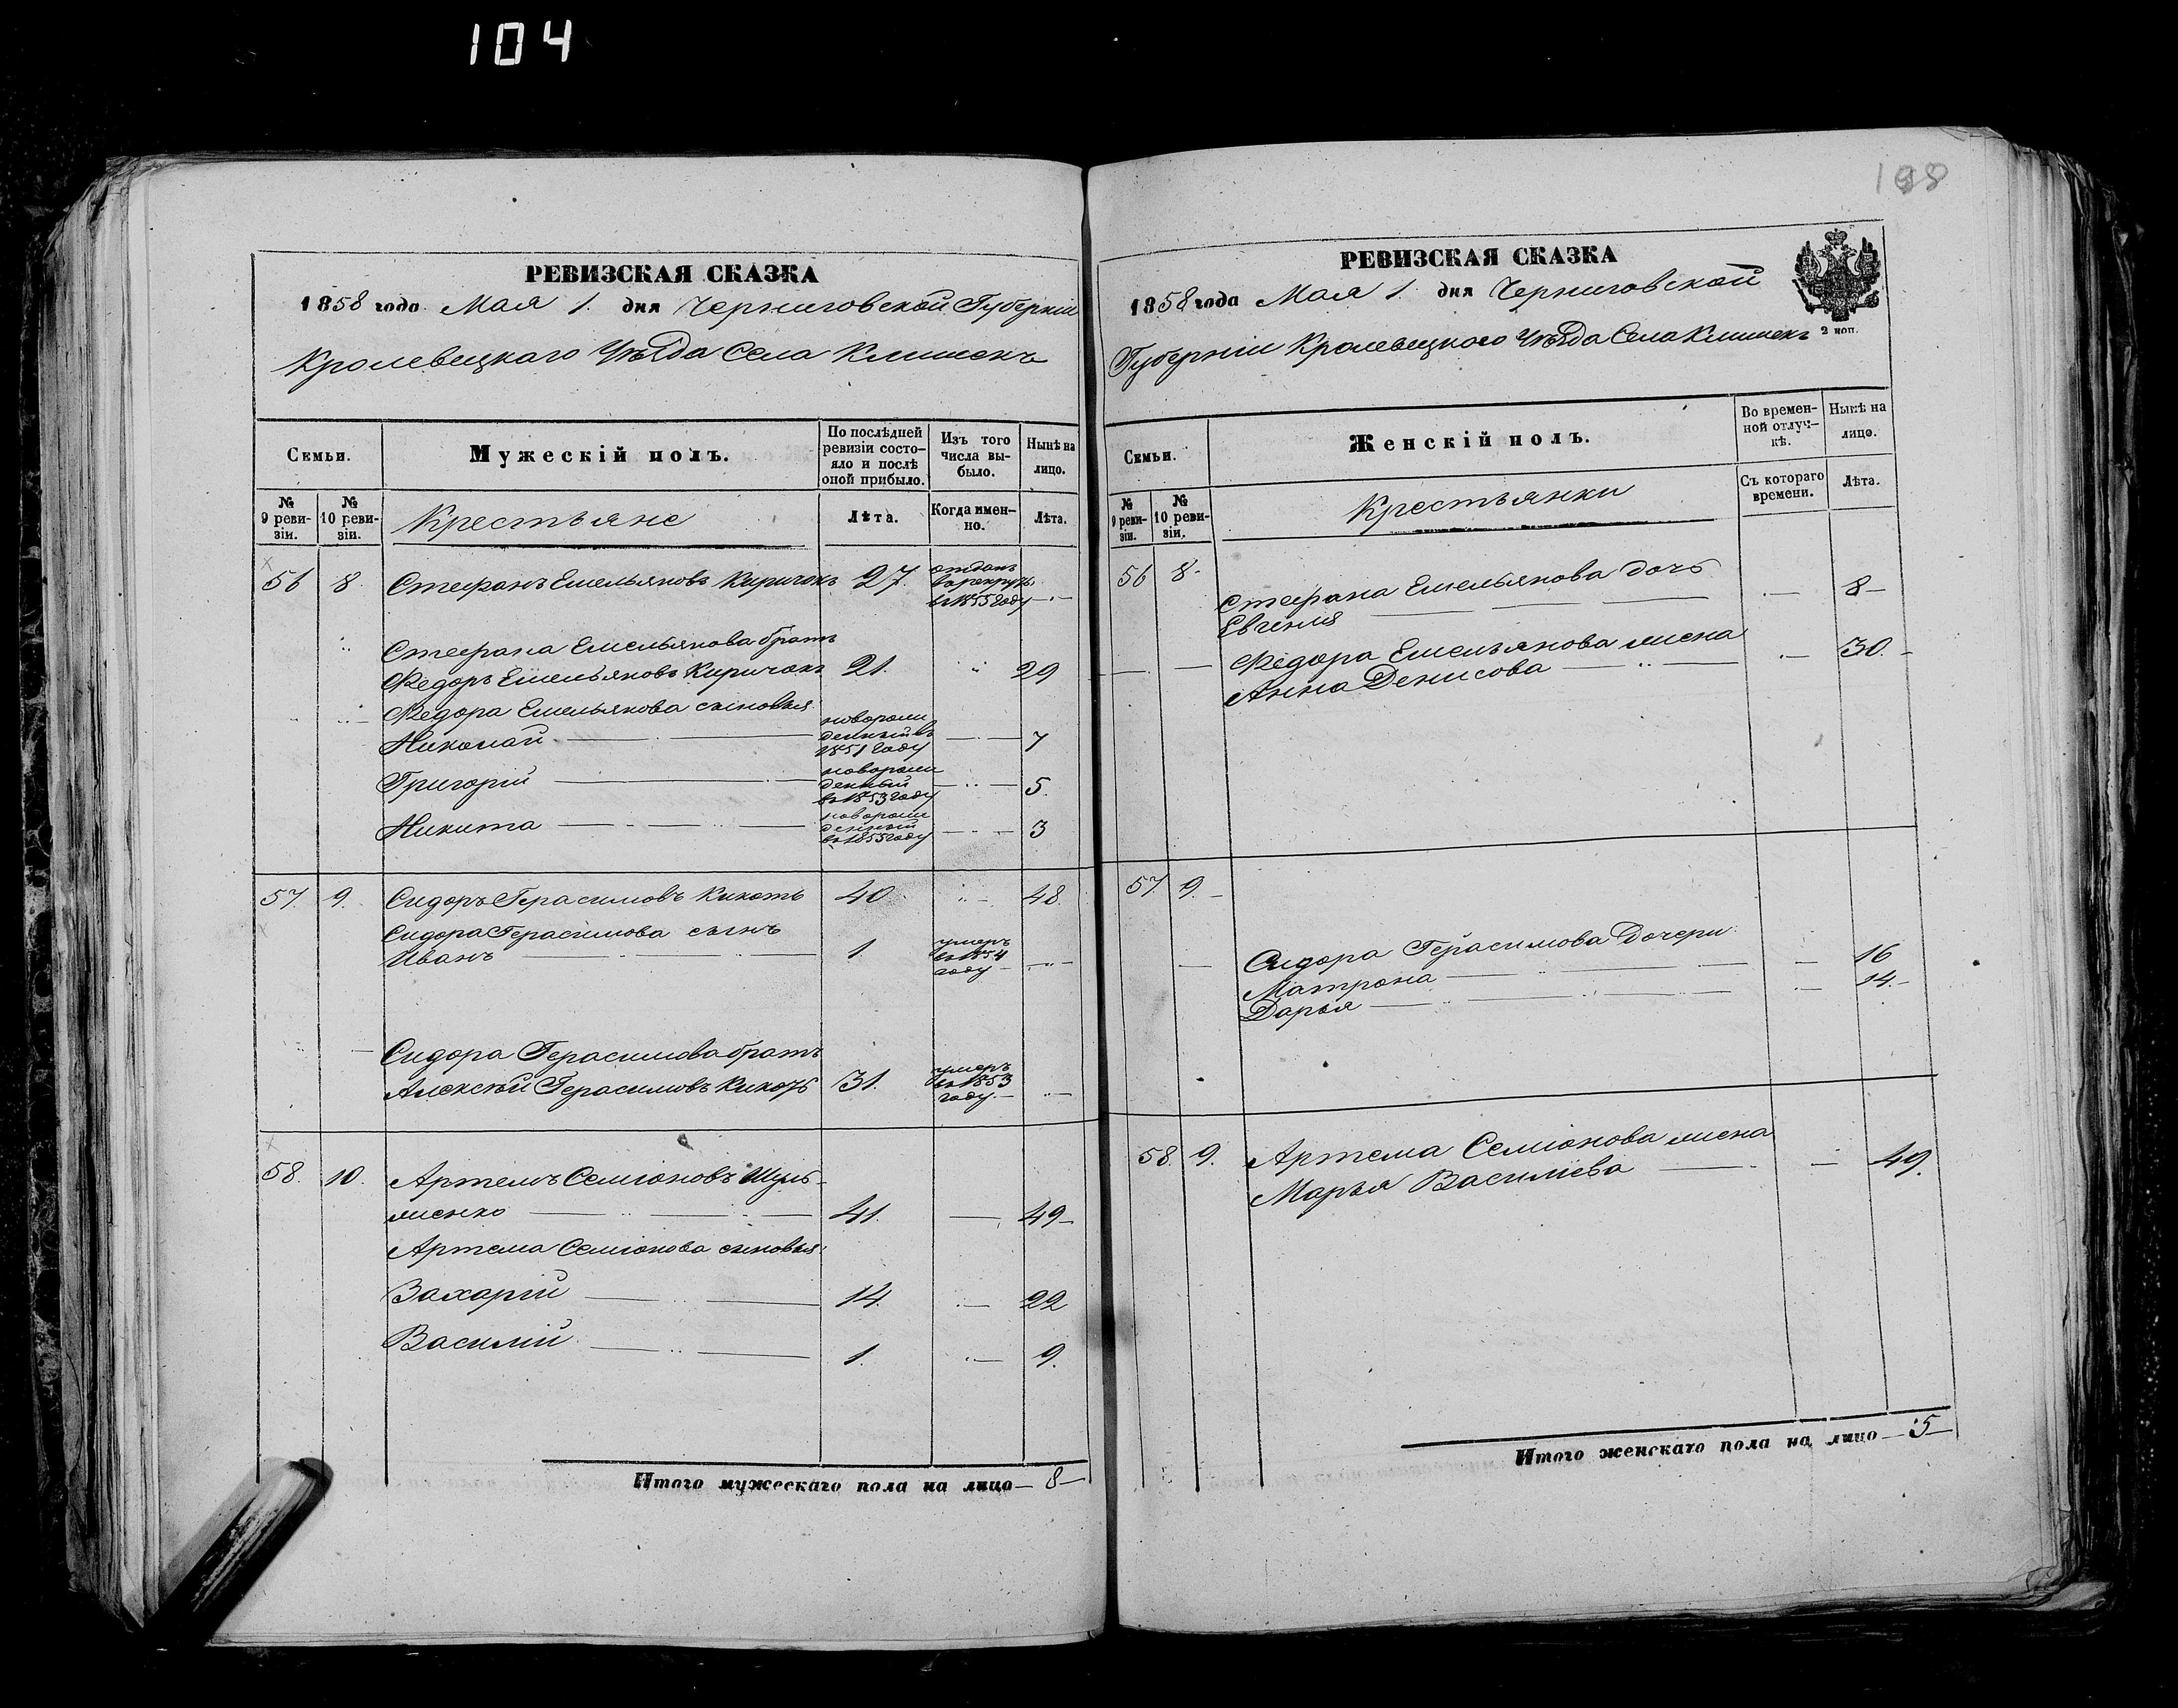 104
198
РЕВИЗСКАЯ СКАЗКА
1858 года Мая 1. дня Черниговской Губерніи
Кролевецкаго Уѣзда Села Клишекъ
Семьи.
Мужескій полъ.
По послѣдней ревизіи состояло и послѣ оной прибыло.
Изъ того числа выбыло.
Нынѣ на лицо.
№ 9 ревизіи.
№ 10 ревизіи.
Крестьяне
Лѣта.
Когда именно.
Лѣта.
56 8. Стефанъ Емельяновъ Киричокъ 27. отданъ в рекруты в 1855 году
Стефана Емельянова братъ
Федоръ Емельяновъ Киричокъ 21. 29
Федора Емельянова сыновья
Николай новорожденный въ 1851 году 7
Григорій новорожденный въ 1853 году 5.
Никита новорожденный въ 1855 году 3
57. 9. Сидоръ Герасимовъ Кикоть 40 48.
Сидора Герасимова сынъ
Иванъ 1. умеръ въ 1854 году
Сидора Герасимова братъ
Алексѣй Герасимовъ Кикоть 31. умеръ въ 1853 году
58. 10. Артемъ Семіоновъ Шуль-
женко 41. 49
Артема Семіонова сыновья:
Захарій 14. 22
Василій 1. 9.
Итого мужескаго пола на лицо 8
РЕВИЗСКАЯ СКАЗКА
1858 года Мая 1. дня Черниговской
Губерніи Кролевецкого Уѣзда Села Клишекъ
2 коп.
Семьи.
Женскій полъ.
Во временной отлучкѣ.
Нынѣ на лицо.
№ 9 ревизіи.
№ 10 ревизіи.
Крестьянки
Съ котораго времени.
Лѣта.
56 8. Стефана Емельянова дочь
Евгенія 8
Федора Емельянова жена
Анна Денисова 30.
57 9.
Сидора Герасимова дочери
Матрона 16
Дарья 14.
58. 9. Артема Семіонова жена
Марья Василіева 49.
Итого женскаго пола на лицо 5